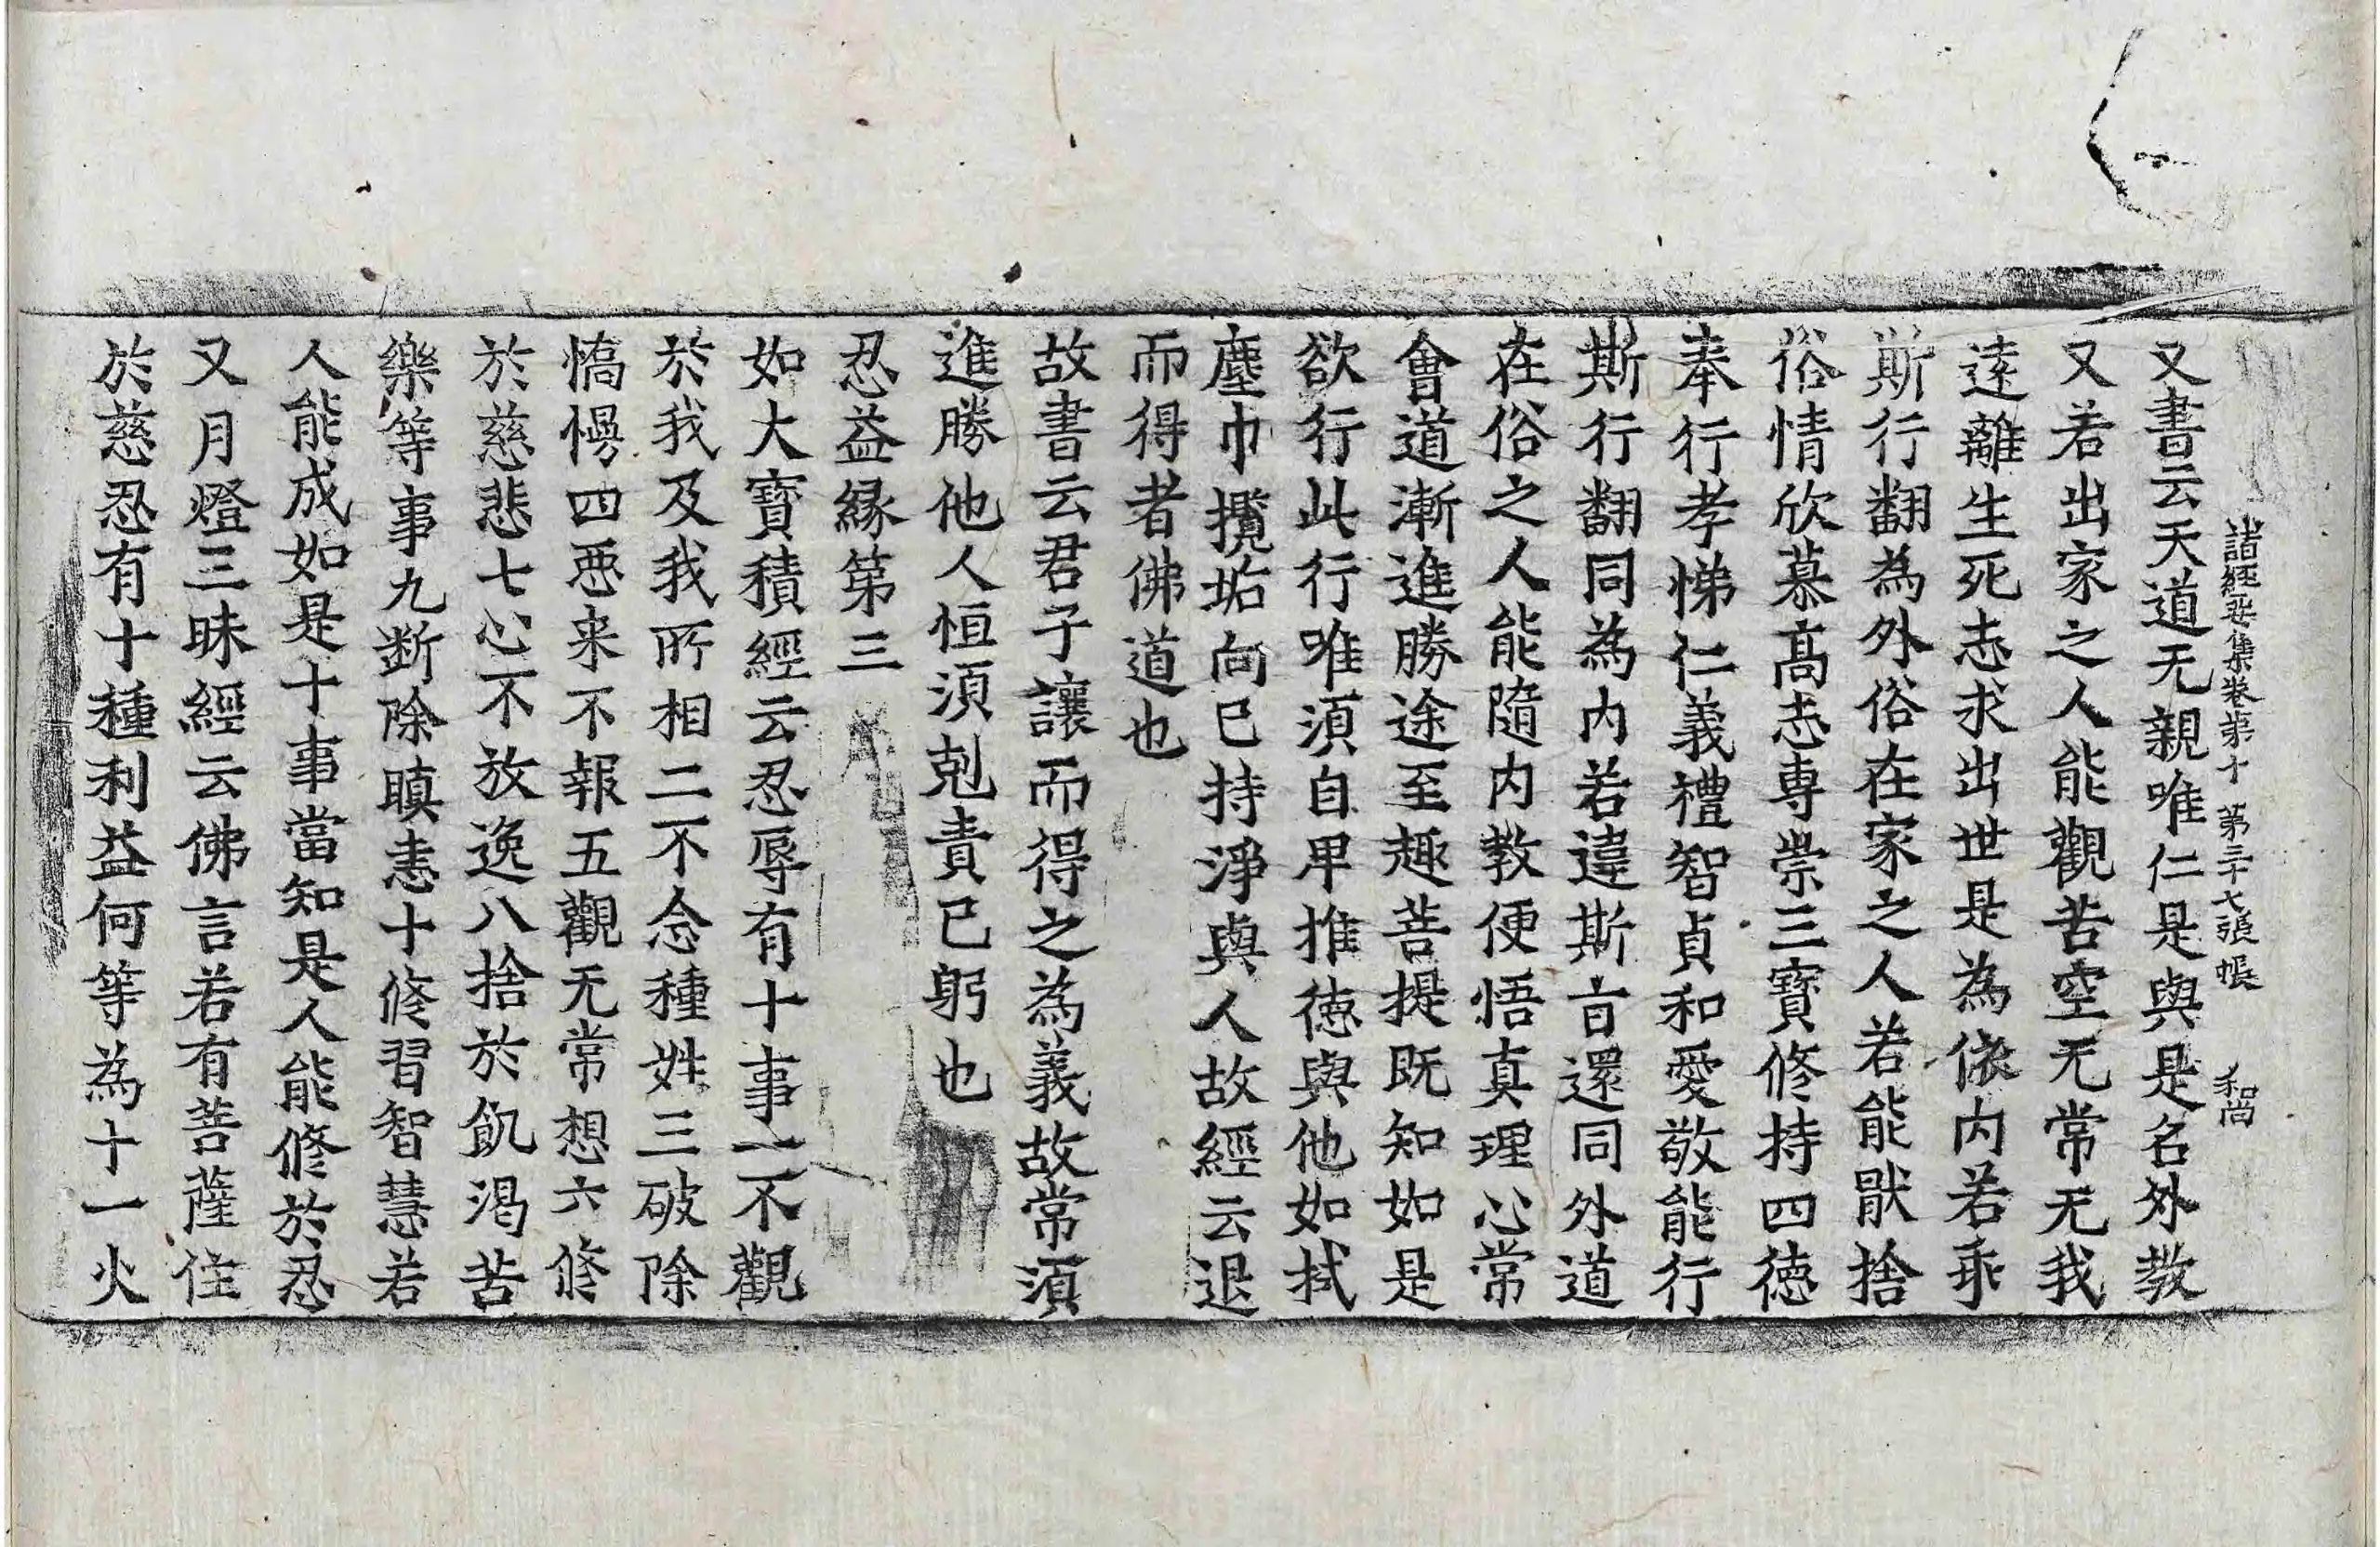 諸經要集卷第十 第三十七張 帳 和尚
又書云天道无親唯仁是與是名外教
又若出家之人能觀苦空无常无我
遠離生死志求出世是為依内若乖
斯行翻為外俗在家之人若能猒捨
俗情欣慕髙志専崇三寶修持四徳
奉行孝悌仁義禮智貞和愛敬能行
斯行翻同為内若違斯旨還同外道
在俗之人能隨内教便悟真理心常
會道漸進勝途至趣菩提既知如是
欲行此行唯湏自卑推徳與他如拭
塵巾攬垢向已持淨與人故經云退
而得者佛道也
故書云君子讓而得之為義故常湏
進勝他人恒湏剋責已躬也
忍益縁第三
如大寶積經云忍辱有十事一不觀
於我及我所相二不念種姓三破除
憍慢四惡来不報五觀无常想六修
於慈悲七心不放逸八捨於飢渴苦
樂等事九斷除瞋恚十修習智慧若
人能成如是十事當知是人能修於忍
又月燈三昧經云佛言若有菩薩住
於慈忍有十種利益何等為十一火